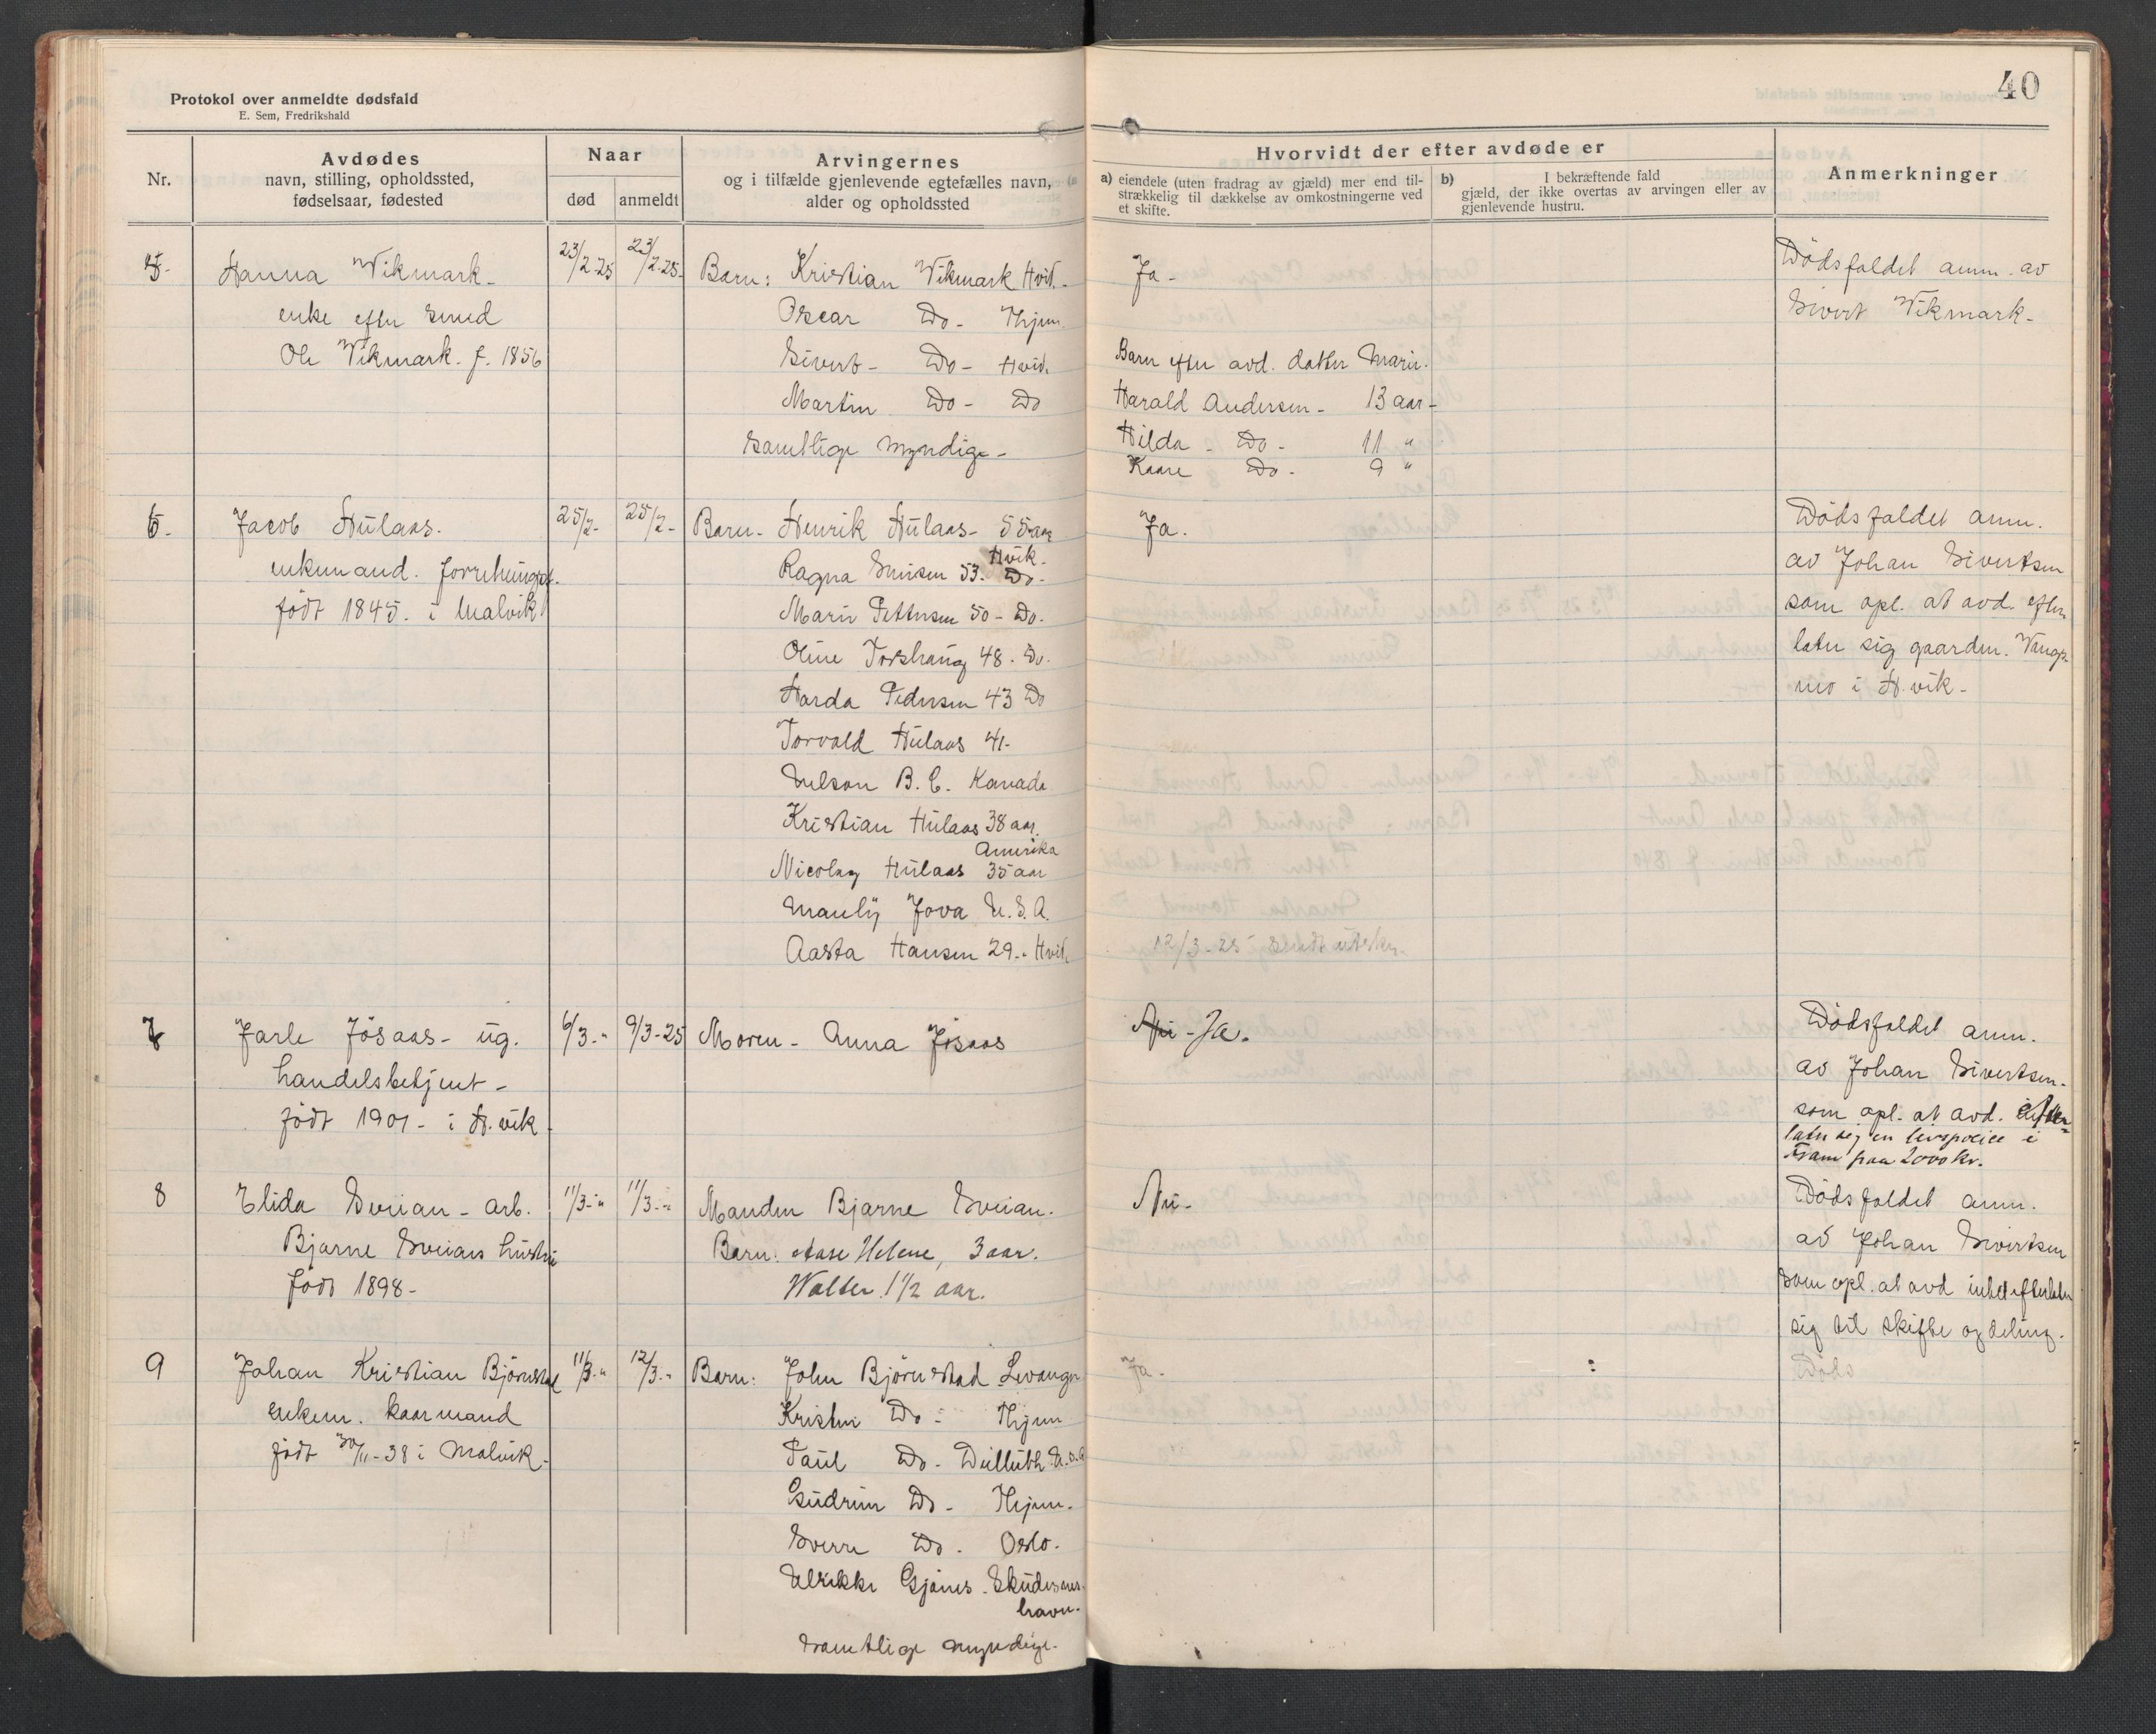 Protokol over anmeldte dødsfald
E. Sem, Fredrikshald
40
Nr.
Avdødes
navn, stilling, opholdssted,
fødselsaar, fødested
Naar
død
anmeldt
Arvingernes
og i tilfælde gjenlevende egtefælles navn,
alder og opholdssted
Hvorvidt der efter avdøde er
a) eiendele (uten fradrag av gjæld) mer end til-
strækkelig til dækkelse av omkostningerne ved
et skifte.
b) I bekræftende fald
gjæld, der ikke overtas av arvingen eller av
gjenlevende hustru.
Anmerkninger
5.
Hanna Vikmark
enke efter smed
Ole Vikmark. f. 1856
23/2-25
23/2-25-
Barn: Kristian Vikmark Hvik.
Oscar Do- Thjem.
Sivert- Do- Hvik.
Martin Do- Do
samtlige myndige-
Ja-
Barn efter avd. datter Marie.
Harald Andersen- 13 aar-
Hilda- Do- 11 "
Kaare Do- 9 "
Dödsfaldet anm. av
Sivert Vikmark-
6.
Jacob Hulaas.
enkemand. forretningsf.
födt 1845. i Malvik
25/2-
25/2-
Barn- Henrik Hulaas- 55 aar
Hvik.
Ragna Svensen 53. Do-
Marie Pettersen 50- Do-
Oline Torshaug 48. Do.
Harda Pedersen 43 Do
Torvald Hulaas 41-
Nelson B. C. Kanada
Kristian Hulaas 38 aar.
Amerika
Nicolay Hulaas 35 aar
Manly Jova U.S.A.
Aasta Hansen 29.- Hvik.
Ja.
12/3-25 sendt utskr.
Dödsfaldet anm.
av Johan Sivertsen
som opl. at avd. efter
later sig gaarden. Vaugs
mo i H.vik-
7
Jarle Jösaas- ug.
handelsbetjent-
födt 1901- i H.vik
6/3-"
9/3-25
Moren- Anna Jösaas
Nei-Ja.
Dödsfaldet anm.
av Johan Sivertsen.
som opl. at avd. efter
later sig en livspolice i
Fram paa 2000 kr.
8
Elida Sveian- arb.
Bjarne Sveians hustru
födt 1898-
11/3-"
11/3-"
Manden Bjarne Sveian.
Barn: Aase Helene, 3 aar.
Walter 1 1/2 aar.
Nei-
Dödsfaldet anm.
av Johan Sivertsen
som opl. at avd intet efterlater
sig til skifte og deling.
9
Johan Kristian Björnstad
enkem. kaarmand
födt 30/11-38 i Malvik-
11/3-"
12/3-"
Barn: John Björnstad Levanger
Kristine Do- Thjem
Paul Do- Dulluth U.S.A
Gudrun Do- Thjem.
Sverre Do- Oslo.
Ulrikke Gjönes- Skudesnes-
havn-
samtlige myndige-
Ja-
:
Döds